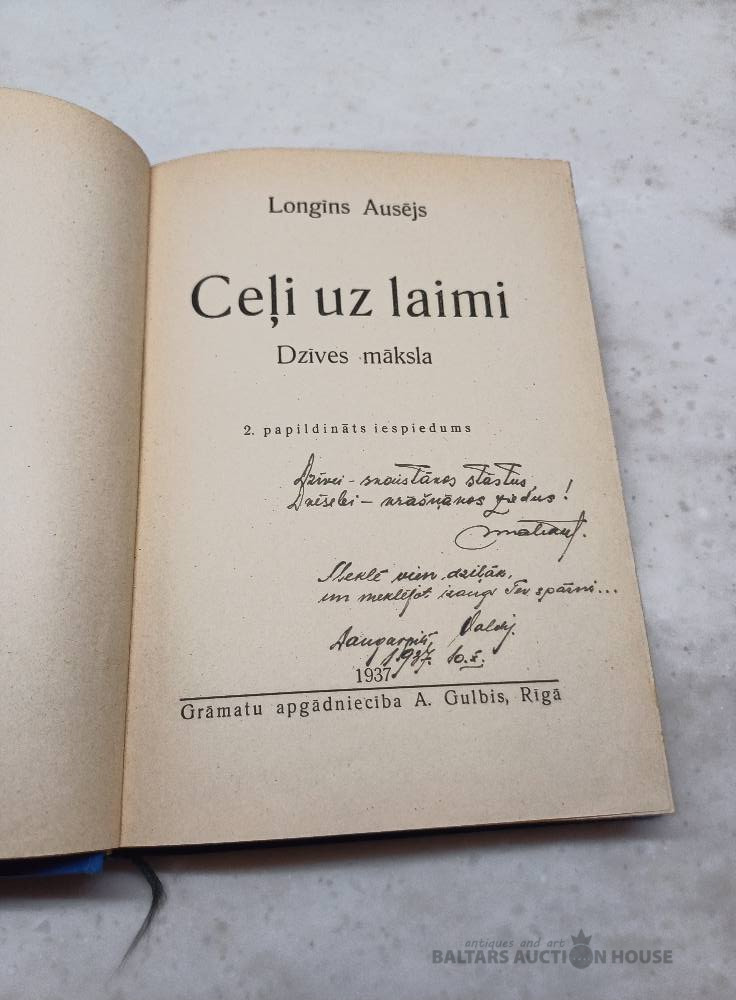 Longīns Ausējs
Ceļi uz laimi
Dzīves māksla
2. papildināts iespiedums
Dzīvei – skaistākos stāstus,
Dvēselei – krāšņākos ziedus!
Meklē vien dziļāk,
un meklējot izaugs Tev spārni...
Daugavpilī, Valdij.
1937. 10.X.
1937
Grāmatu apgādniecība A. Gulbis, Rīgā
antiques and art
BALTARS AUCTION HOUSE